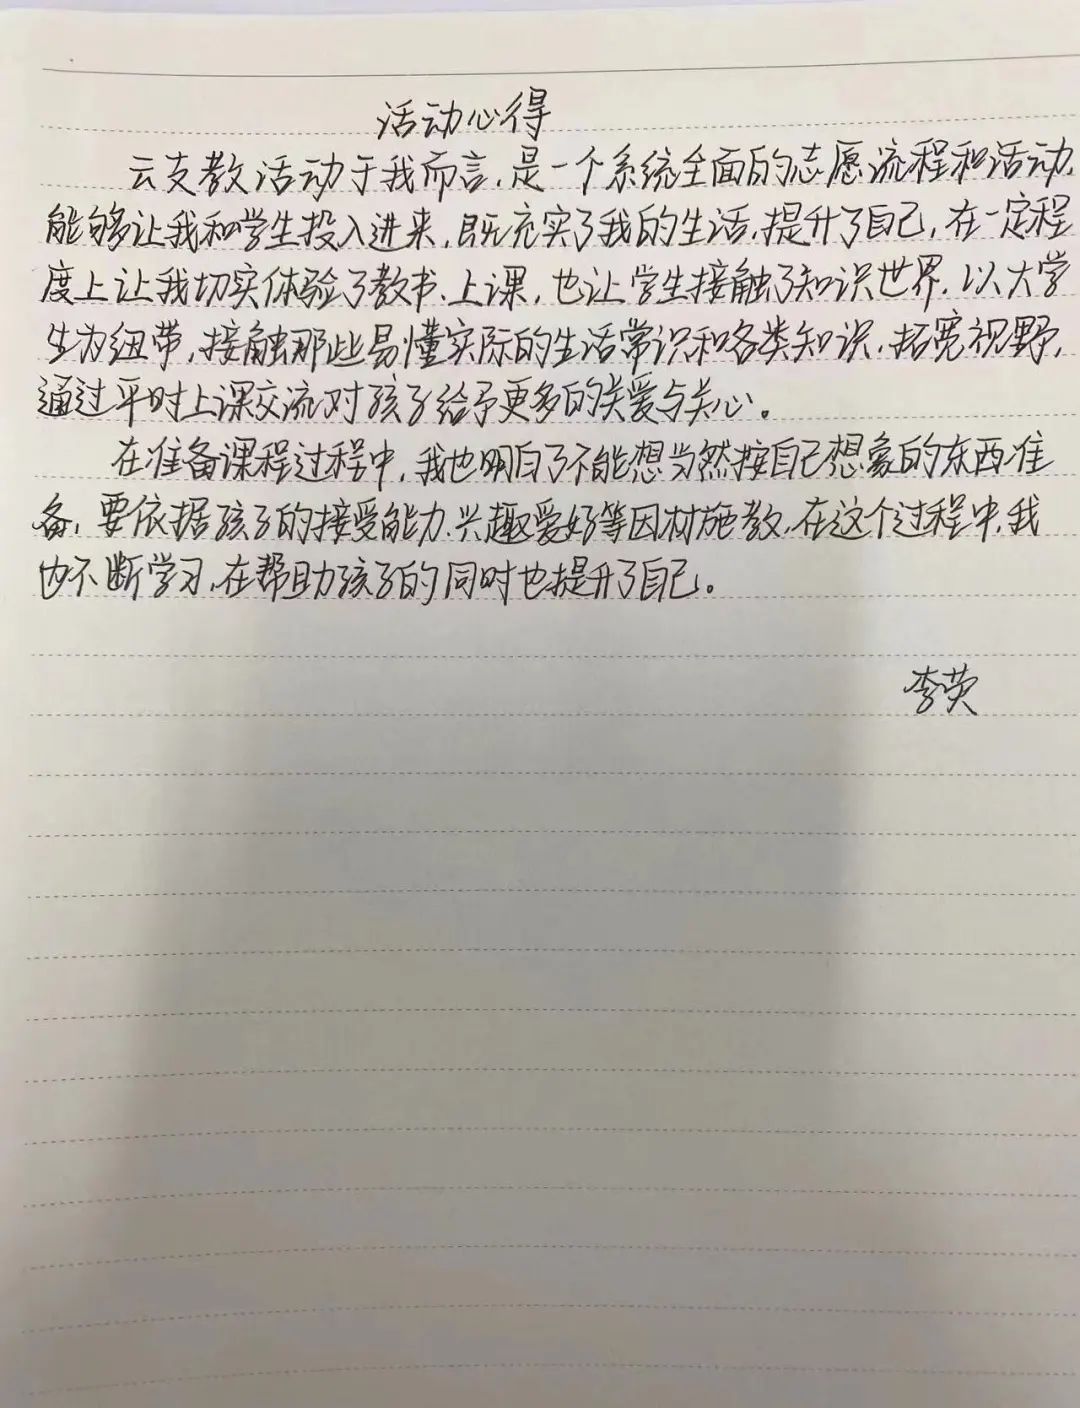 活动心得
云支教活动于我而言，是一个系统全面的志愿流程和活动，
能够让我和学生投入进来，既充实了我的生活，提升了自己，在一定程
度上让我切实体验了教书、上课，也让学生接触了知识世界，以大学
生为纽带，接触那些易懂实际的生活常识和各类知识，拓宽视野，
通过平时上课交流对孩子给予更多的关爱与关心。
在准备课程过程中，我也明白了不能想当然按自己想象的东西准
备，要依据孩子的接受能力、兴趣爱好等因材施教，在这个过程中，我
也不断学习，在帮助孩子的同时也提升了自己。
李荧